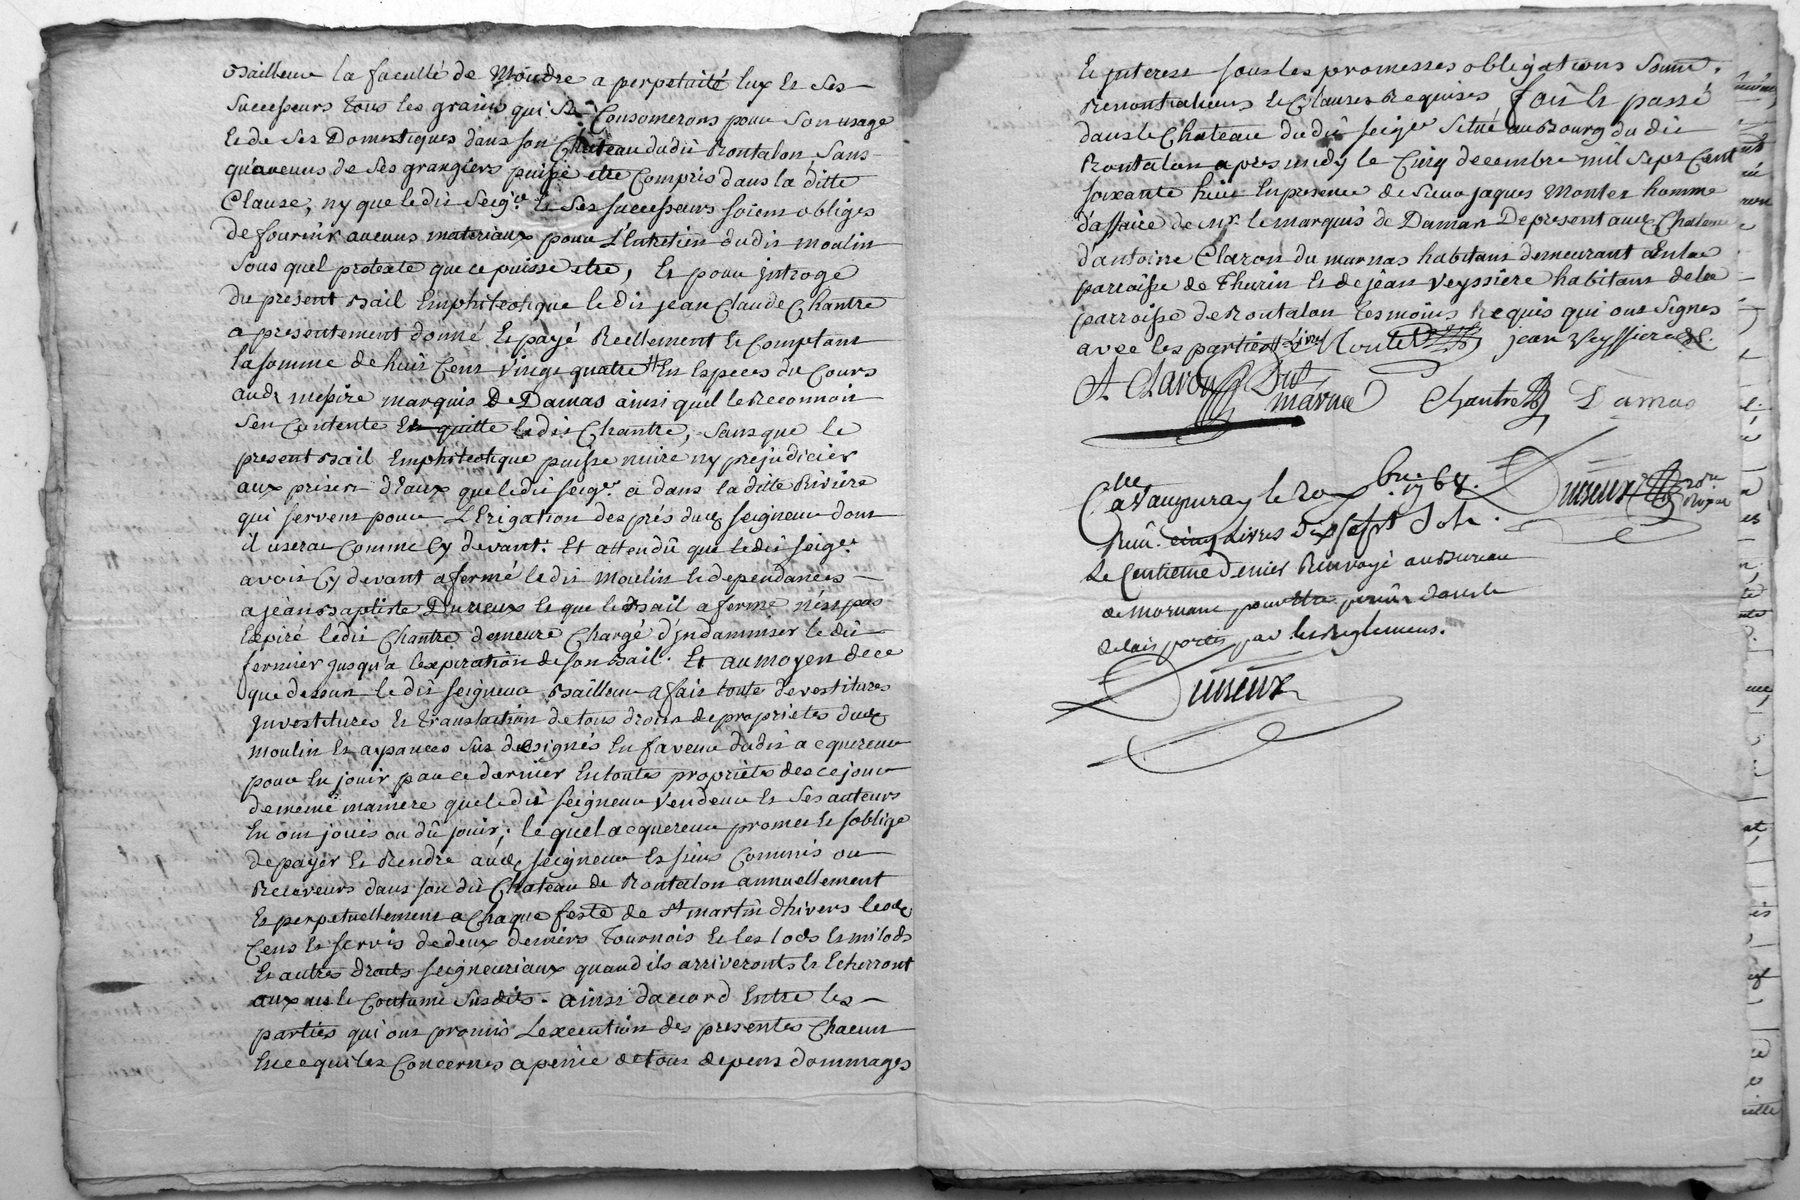 Bailleur la faculté de Moudre a perpetuité luy et ses
successeurs tous les grains qui se Consomerons pour son usage
et de ses Domestiques dans son Château dudit Rontalon sans
qu'aucuns de ses grangiers puisse etre Compris dans la ditte
Clause, ny que ledit Seigr. et ses successeurs soient obliges
de fournir aucuns materiaux pour L'Entretien dudit moulin
sous quel pretexte que ce puisse etre, Et pour introge
du present Bail Emphiteotique ledit jean Claude Chantre
a presentement donné et payé Reellement et Comptant
la somme de huit Cent vingt quatre ₶ En Especes du Cours
aud. messire marquis De Damas ainsi quil le Reconnoit
s'en Contente Et quitte ledit Chantre, sans que le
present Bail Emphiteotique puisse nuire ny prejudicier
aux prises d'Eaux que ledit seigr. a dans la ditte Riviere
qui servent pour L'Erigation des prés dud. seigneur dont
il usera comme Cy devant. Et attendû que ledit seigr.
avoit Cy devant afermé ledit moulin et dependances
a jean Baptiste Durieux et que le Bail a ferme n'est pas
Expiré ledit Chantre demeure Chargé d'jndamniser ledit
fermier jusqu'a l'expiration de son Bail. Et au moyen de ce
que dessus ledit seigneur Bailleur a fait toute devestitures
jnvestitures et translaction de tous droits de proprietes dud.
moulin et aysances sus designés En faveur dudit acquereur
pour En jouir par ce dernier En toutes proprietés des ce jour
de meme maniere que ledit seigneur vendeur et ses auteurs
En ont jouis ou dû jouir, lequel acquereur promet et s'oblige
de payer et Rendre aud. seigneur Es siens Commis ou
Receveurs dans son dit Chateau de Rontalon annuellement
Et perpetuellement a Chaque feste de St martin d'hivers lesd.
Cens et servis de deux deniers Tournois et les lods et milods
Et autres droits seigneuriaux quand ils arriveronts et Echerront
aux us et Coutume susdits. ainsi d'acord Entre les
parties qui ont promis L'execution des presentes Chacun
En ce qui les Concernes a peine de tous depens dommages
Et jnterest sous les promesses obligations soum.
Renontiations et Clauses Requises, fait et passé
dans le Chateau dudit seigr. situé au Bourg du dit
Rontalon apres midy le Cinq decembre mil sept Cent
soixante huit En presence de sieur jaques Montez homme
d'affaire de Mr. le marquis de Damas De present aud. Chateau
d'antoine Claron du marnas habitant demeurant En la
parroisse de Thurin et de jean veyssiere habitant de la
parroisse de Rontalon temoins Requis qui ont signes
avec les parties jean Veyssiere
A. Claron Du
marnas Chantre Damas
Clle
a Vaugneray le 20 Xbre 1768. Durieux
Reçu cinq Livres Dix sept sols.
Le Centieme denier Renvoyé au Bureau
de mornant pour etre perçu dans le
delais portés par les Reglemens.
Durieux